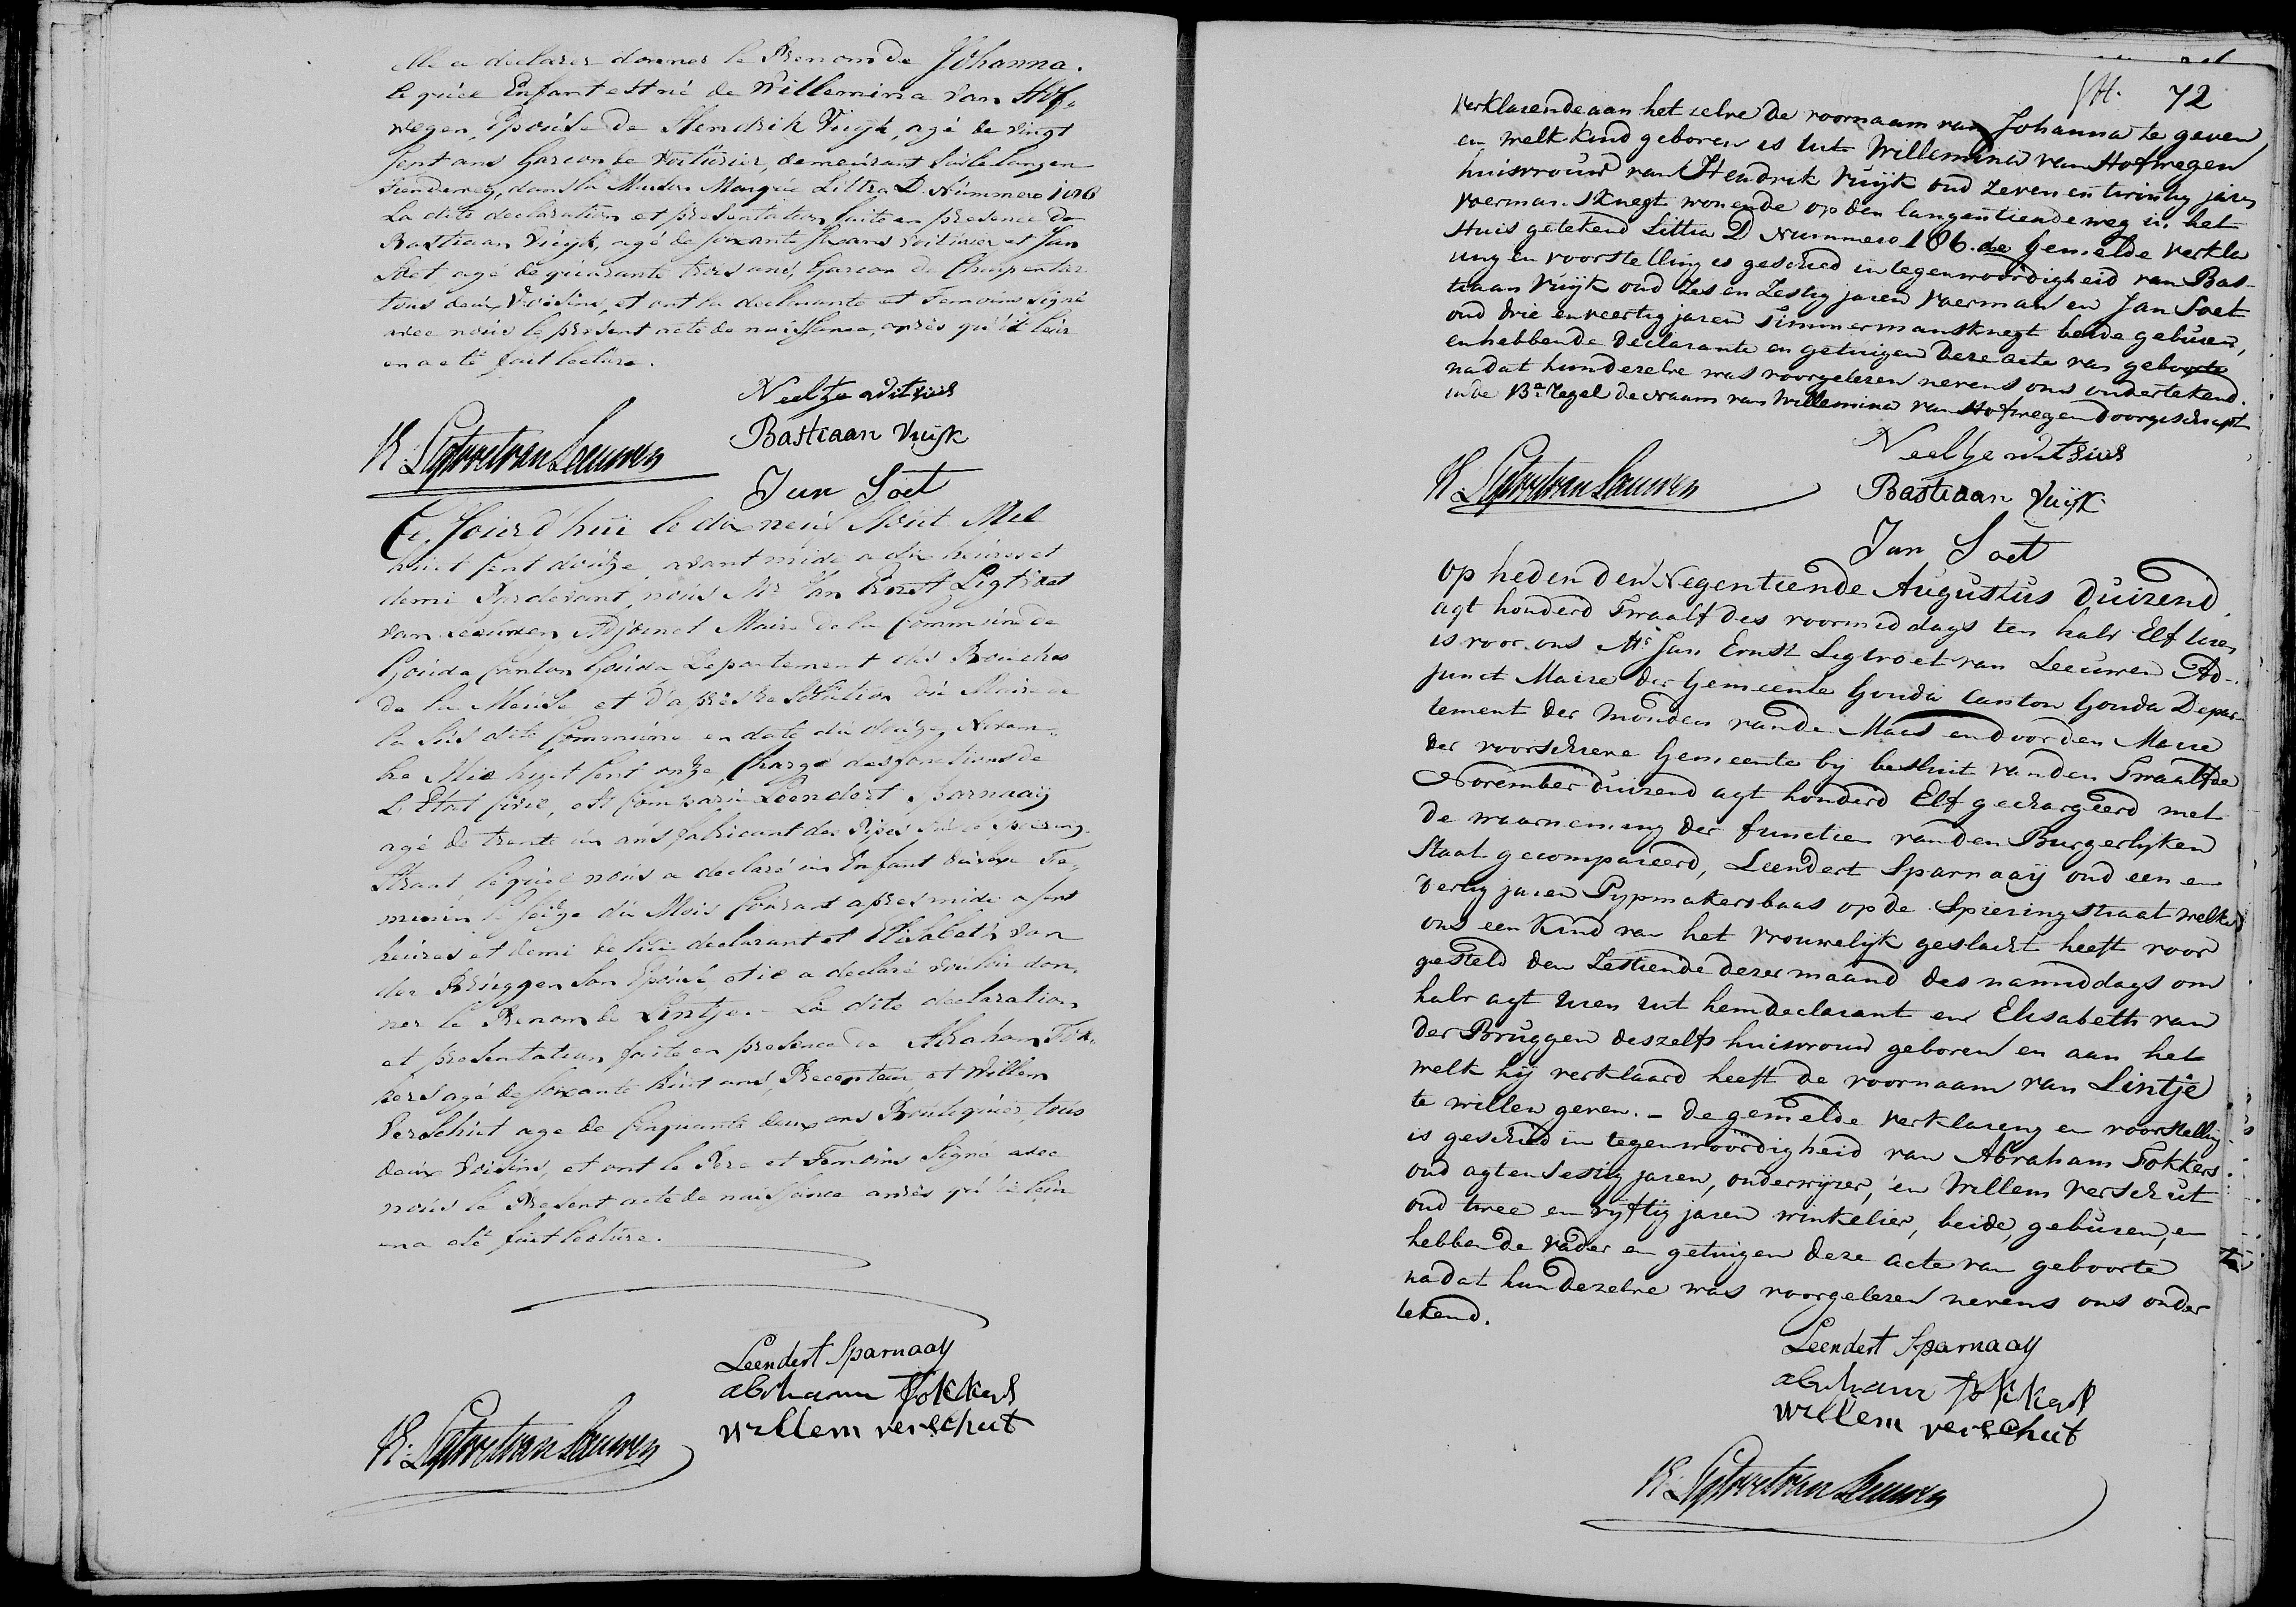 elle a declarer donner le Prenom de Johanna.
lequel Enfant est né de Willemina van Hof-
wegen, Epouse de Hendrik Vuyk, agé de vingt
sept ans Garcon de Voiturier, demeurant sur le Langen
Tiendeweg, dans la Maison Marquée Littra D. Nummero 186
La dite declaration et presentation faite en presence de
Bastiaan Vuyk, agé de soixante six ans voiturier et Jan
Soet, agé de quarante trois ans, Garcon de Charpentier
tous deux Voisins, et ont la declarante et Temoins signé
avec nous le present acte de naissance, après qu'il leur
en a eté fait lecture.
Neeltje Witsius
Bastiaan Vuyk
Ligtvoet van Leeuwen
Jan Soet
Ce Jourd'hui le dix neuf Aout Mil
huit Cent douze, avant midi a dix heures et
demi Pardevant nous Mr Jan Ernst Ligtvoet
van Leeuwen Adjoinct Maire de la Commune de
Gouda Canton Gouda Departement des Bouches
de la Meuse et d'après resolution du Maire de
la sus dite Commune en date du douze Novem-
bre Mil huit Cent onze, Chargé des fonctions de
L'Etat Civil, est Comparu Leendert Sparnaaij
agé de trente un ans fabricant des Pipes sur le Spiering-
straat lequel nous a declaré un Enfant du sexe Fe-
minin le seize du Mois Courant apres midi a sept
heures et demi de lui declarant et Elisabeth van
der Bruggen son Epouse, et il a declaré vouloir don-
ner le Prenom de Lintje. - La dite declaration
et presentation faite en presence de Abraham Fok-
kers agé de soixante huit ans, Precepteur et Willem
Verschut age de Cinquante deux ans Boutiquier, tous
deux Voisins, et ont le Pere et Temoins Signé avec
nous le Present acte de naissance après qu'il leur
en a eté fait lecture.
Leendert Sparnaay
abraham Fokkers
Willem verschut
Ligtvoet van Leeuwen
72
verklarende aan het selve de voornaam van Johanna te geven
en welk kind geboren is uit Willemina van Hofwegen
huisvrouw van Hendrik Vuijk oud zeven en twintig jaren
voermansknegt wonende op den langen tiendeweg in het
Huis getekend Littra D Nummero 186. de Gemelde verkla
ring en voorstelling is geschied in tegenwoordigheid van Bas-
tiaan Vuijk oud zes en Zestig jaren Voerman en Jan Soet
oud drie en veertig jaren Timmermansknegt beide geburen,
en hebbende declarante en getuigen deze acte van geboorte
nadat hun dezelve was voorgelezen nevens ons ondertekend.
in de 13e Regel de Naam van Willemina van Hofwegen doorgeschrapt
Neeltje Witsius
Ligtvoet van Leeuwen
Bastiaan Vuijk
Jan Soet
Op heden den Negentiende Augustus Duizend
agt honderd Twaalf des voormiddags ten halv Elf uren
is voor ons Mr Jan Ernst Ligtvoet van Leeuwen Ad-
junct Maire der Gemeente Gouda Canton Gouda Depar-
tement der Monden van de Maas en door den Maire
der voorschreve Gemeente by besluit van den Twaalfde
November duizend agt honderd Elf gechargeerd met
de waarneming der functien van den Burgerlyken
Staat gecompareerd, Leendert Sparnaaij oud een en
dertig jaren Pypmakersbaas op de Spieringstraat welke
ons een Kind van het vrouwelijk geslacht heeft voor
gesteld den Zestiende dezer maand des namiddags om
halv agt uren uit hem declarant en Elisabeth van
der Bruggen deszelfs huisvrouw geboren en aan het
welk hij verklaard heeft de voornaam van Lintje
te willen geven. - de gemelde verklaring en voorstelling
is geschied in tegenwoordigheid van Abraham Fokkers
oud agt en sestig jaren, onderwyzer, en Willem Verschut
oud twee en vyftig jaren winkelier, beide, geburen, en
hebbende vader en getuigen deze acte van geboorte
nadat hun dezelve was voorgelezen nevens ons onder
tekend.
Leendert Sparnaay
abraham Fokkers
Willem verschut
Ligtvoet van Leeuwen